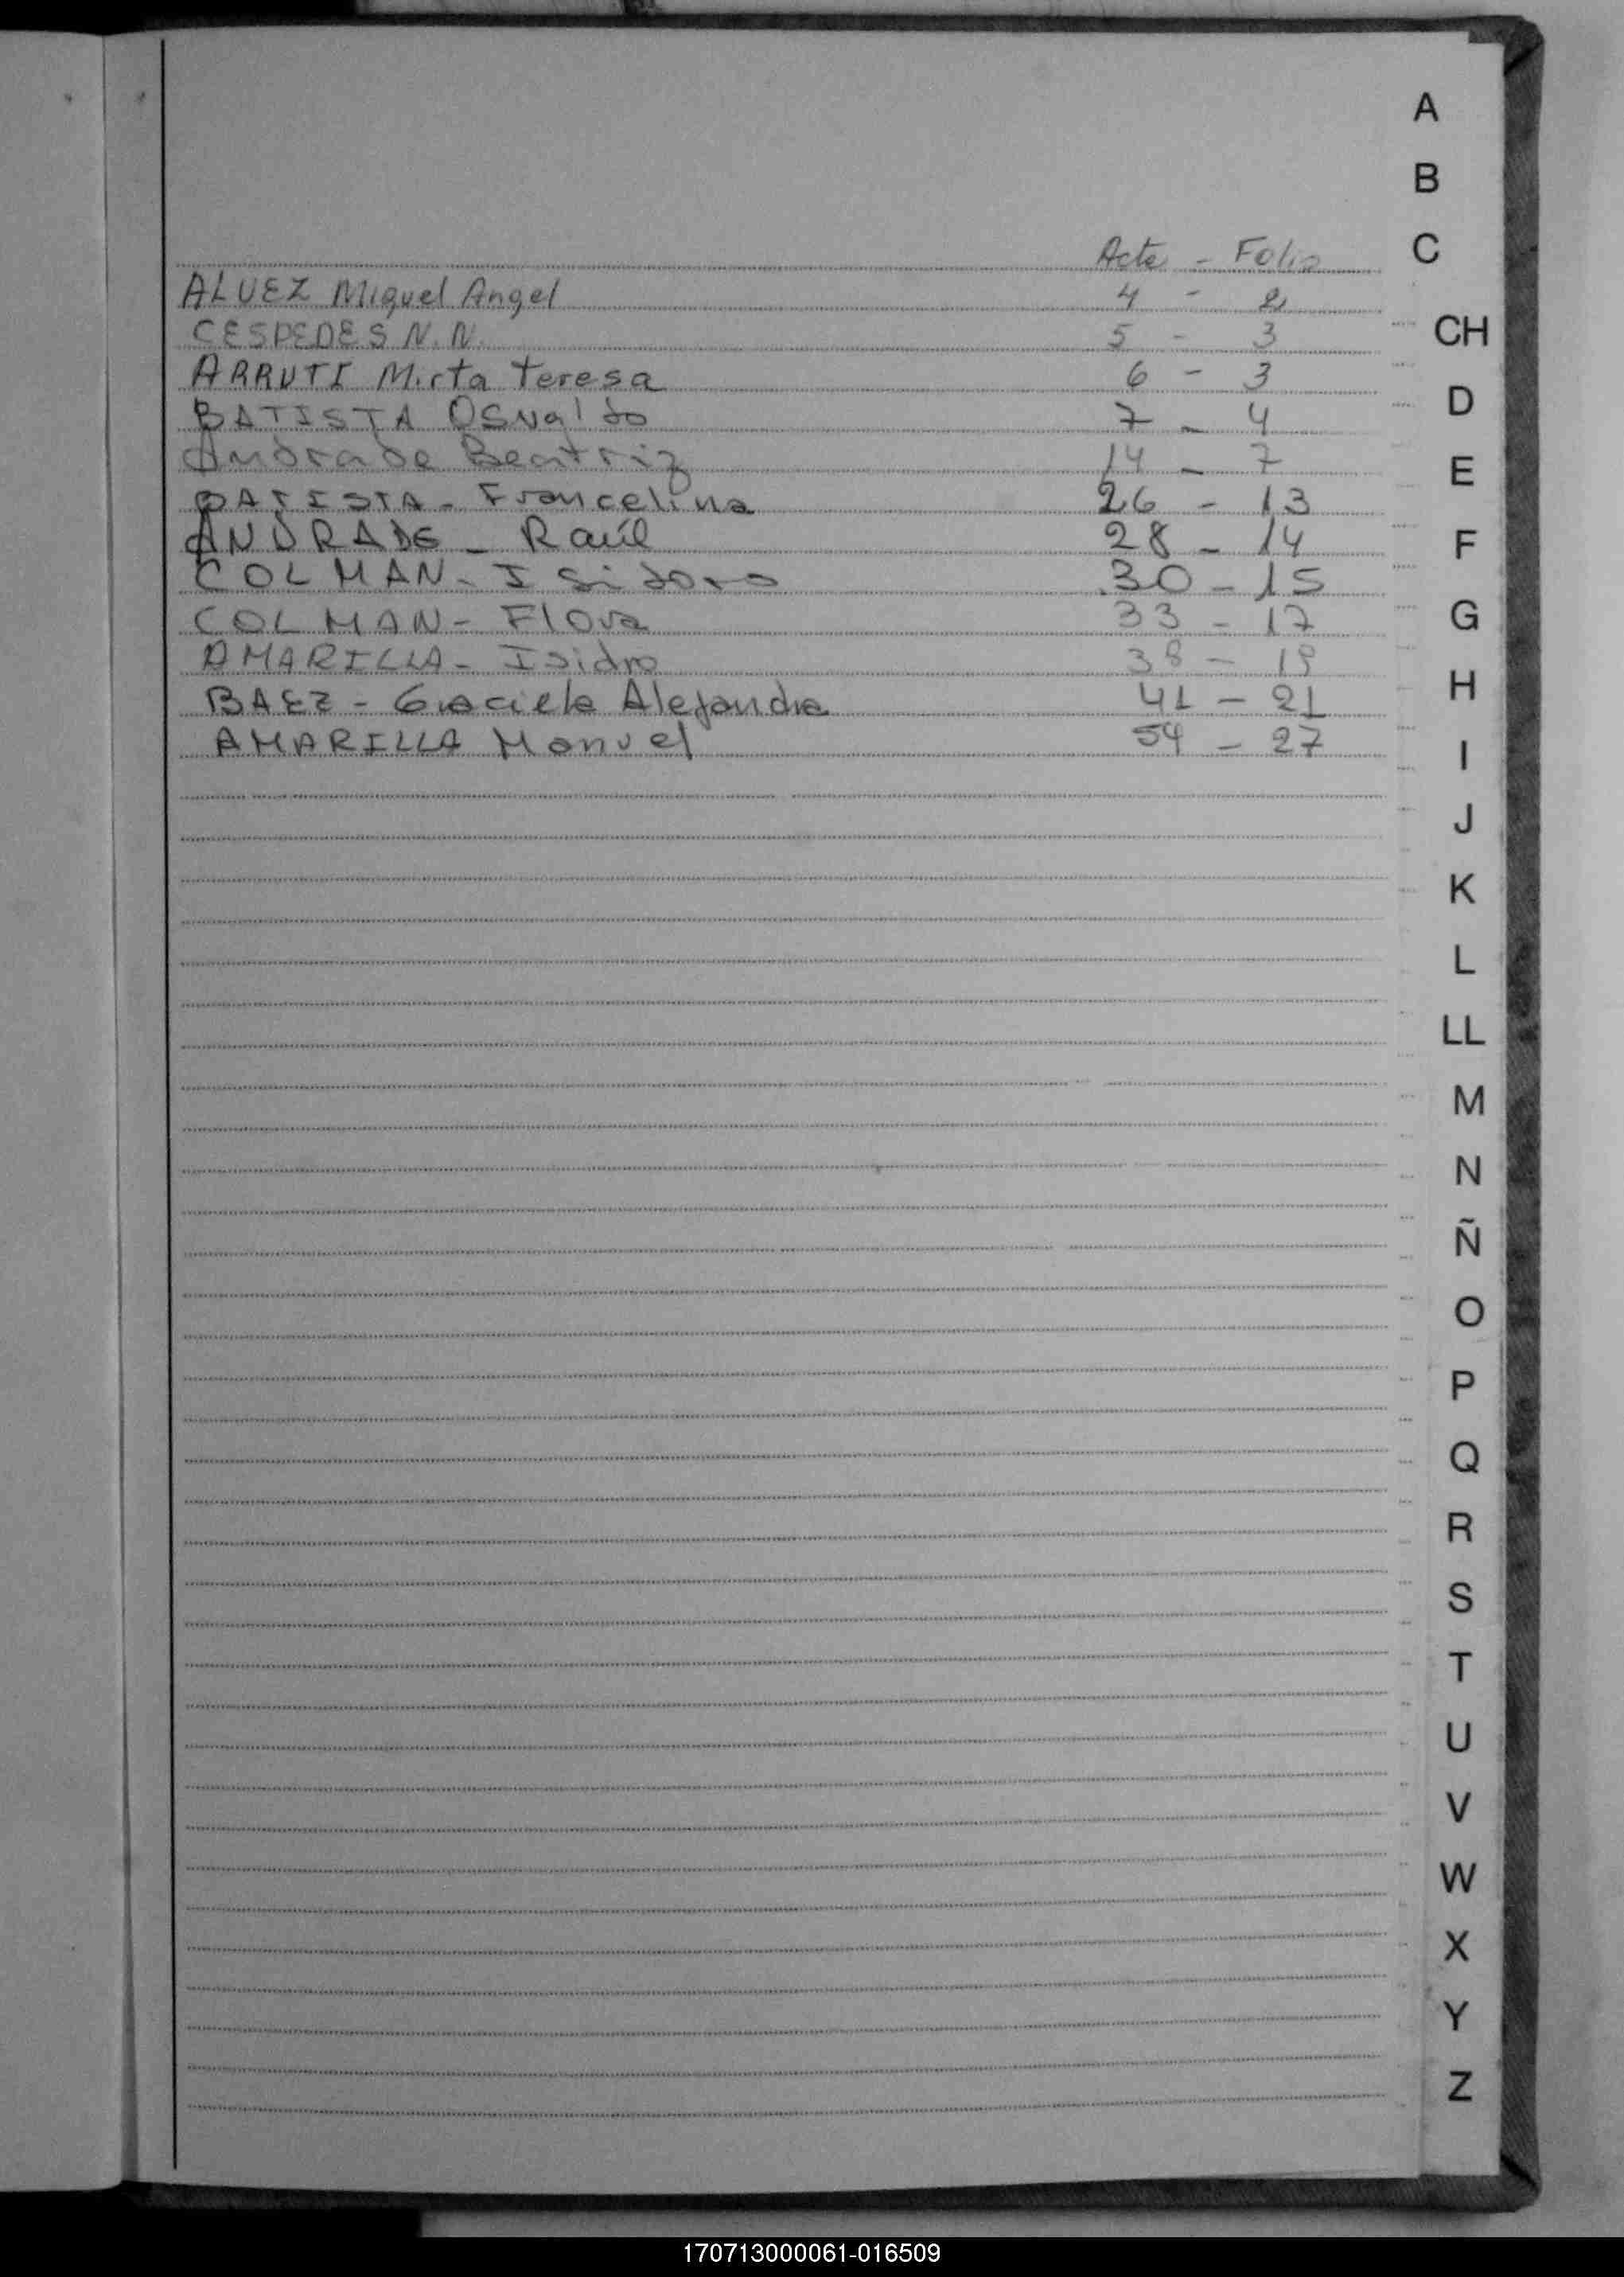 Acta - Folio
ALVEZ Miguel Angel 4 - 2
CESPEDES N.N. 5 - 3
ARRUTI Mirta Teresa 6 - 3
BATISTA OSvaldo 7 - 4
Andrade Beatriz 14 - 7
BATISTA - Francelina 26 - 13
ANDRADE - Raúl 28 - 14
COLMAN - Isidoro 30 - 15
COLMAN - Flora 33 - 17
AMARILLA - Isidro 38 - 19
BAEZ - Graciela Alejandra 41 - 21
AMARILLA Manuel 54 - 27
A
B
C
CH
D
E
F
G
H
I
J
K
L
LL
M
N
Ñ
O
P
Q
R
S
T
U
V
W
X
Y
Z
170713000061-016509